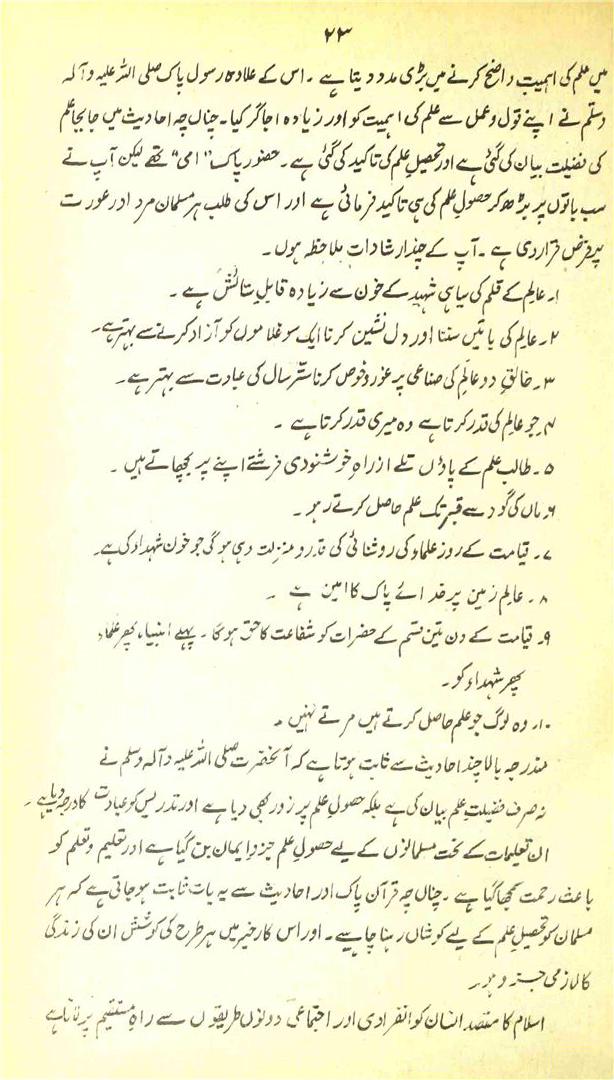 ۲۳
میں علم کی اہمیت واضح کرنے میں بڑی مدد دیتا ہے ۔ اس کے علاوہ رسول پاک صلی اللہ علیہ و آلہ
وسلم نے اپنے قول و عمل سے علم کی اہمیت کو اور زیادہ اجاگر کیا۔ چناں چہ احادیث میں جابجا علم
کی فضیلت بیان کی گئی ہے اور تحصیلِ علم کی تاکید کی گئی ہے ۔ حضور پاک "امی" تھے لیکن آپ نے
سب باتوں پر بڑھ کر حصولِ علم کی ہی تاکید فرمائی ہے اور اس کی طلب ہر مسلمان مرد اور عورت
پر فرض قرار دی ہے ۔ آپ کے چند ارشادات ملاحظہ ہوں ۔
۱۔ عالِم کے قلم کی سیاہی شہید کے خون سے زیادہ قابلِ ستائش ہے ۔
۲۔ عالِم کی باتیں سننا اور دل نشین کرنا ایک سو غلاموں کو آزاد کرنے سے بہتر ہے۔
۳۔ خالقِ دو عالَم کی صناعی پر غور و خوض کرنا ستّر سال کی عبادت سے بہتر ہے۔
۴۔ جو عالِم کی قدر کرتا ہے وہ میری قدر کرتا ہے ۔
۵۔ طالب علم کے پاؤں تلے از راہِ خوشنودی فرشتے اپنے پر بچھاتے ہیں ۔
۶۔ ماں کی گود سے قبر تک علم حاصل کرتے رہو ۔
۷۔ قیامت کے روز علماء کی روشنائی کی قدر و منزلت وہی ہوگی جو خون شہداء کی ہے۔
۸۔ عالِم زمین پر خدائے پاک کا امین ہے ۔
۹۔ قیامت کے دن تین قسم کے حضرات کو شفاعت کا حق ہوگا ۔ پہلے انبیاء، پھر علماء
پھر شہداء کو ۔
۱۰۔ وہ لوگ جو علم حاصل کرتے ہیں مرتے نہیں ۔
مندرجہ بالا چند احادیث سے ثابت ہوتا ہے کہ آنحضرت صلی اللہ علیہ و آلہ وسلم نے
نہ صرف فضیلتِ علم بیان کی ہے بلکہ حصولِ علم پر زور بھی دیا ہے اور تدریس کو عبادت کا درجہ دیا ہے ۔
ان تعلیمات کے تحت مسلمانوں کے لیے حصولِ علم جزوِ ایمان بن گیا ہے اور تعلیم و تعلم کو
باعث رحمت سمجھا گیا ہے ۔ چناں چہ قرآن پاک اور احادیث سے یہ بات ثابت ہو جاتی ہے کہ ہر
مسلمان کو تحصیلِ علم کے لیے کوشاں رہنا چاہیے ۔ اور اس کارِ خیر میں ہر طرح کی کوشش ان کی زندگی
کا لازمی جزو ہو ۔
اسلام کا مقصد انسان کو انفرادی اور اجتماعی دونوں طریقوں سے راہِ مستقیم پر لانا ہے